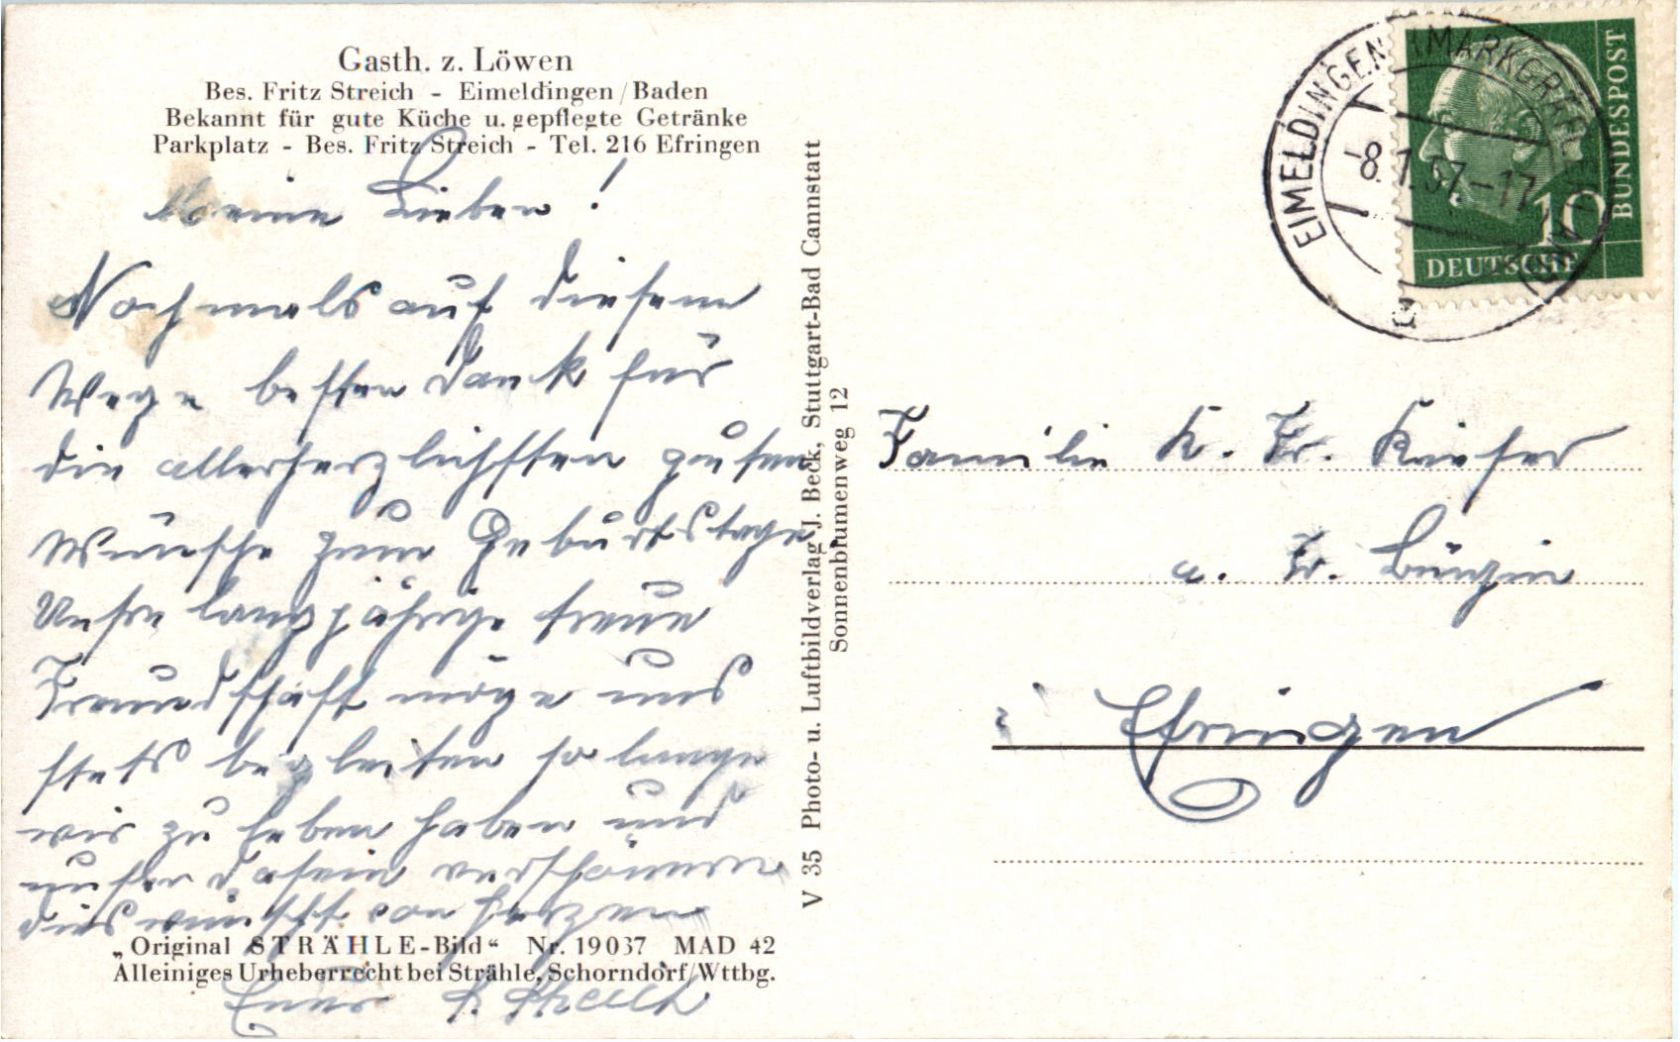 Gasth. z. Löwen
Bes. Fritz Streich - Eimeldingen/Baden
Bekannt für gute Küche u. gepflegte Getränke
Parkplatz - Bes. Fritz Streich - Tel. 216 Efringen
Meine Lieben!
Nochmals auf diesem
Wege besten Dank für
die allerherzlichsten guten
Wünsche zum Geburtstage
Unsre langjährige treue
Freundschaft möge uns
stets begleiten so lange
wir zu leben haben und
unser Dasein verschönern
dies wünscht von Herzen
„Original STRÄHLE-Bild“ Nr. 19037 MAD 42
Alleiniges Urheberrecht bei Strähle, Schorndorf/Wttbg.
Euer
V 35 Photo- u. Luftbildverlag J. Beck, Stuttgart-Bad Cannstatt
Sonnenblumenweg 12
EIMELDINGEN (MARKGRÄFLERLAND)
-8.1.57-17
10
DEUTSCHE
BUNDESPOST
Familie K. Fr. Kiefer
a. Fr. Bürgin
Efringen